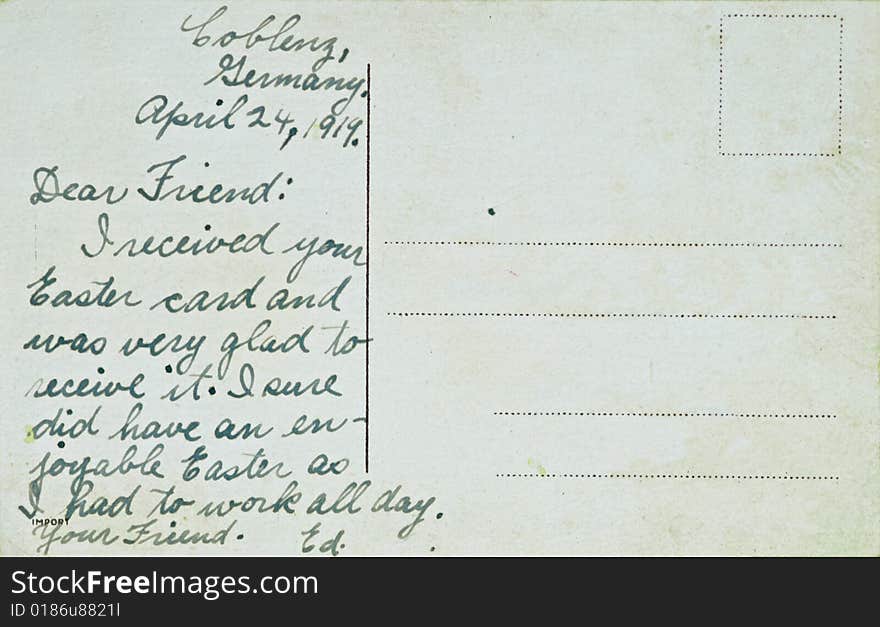 Coblenz,
Germany.
April 24, 1919.
Dear Friend:
I received your
Easter card and
was very glad to
receive it. I sure
did have an en-
joyable Easter as
I had to work all day.
IMPORT
Your Friend.
Ed.
StockFreeImages.com
ID 0186u8821l